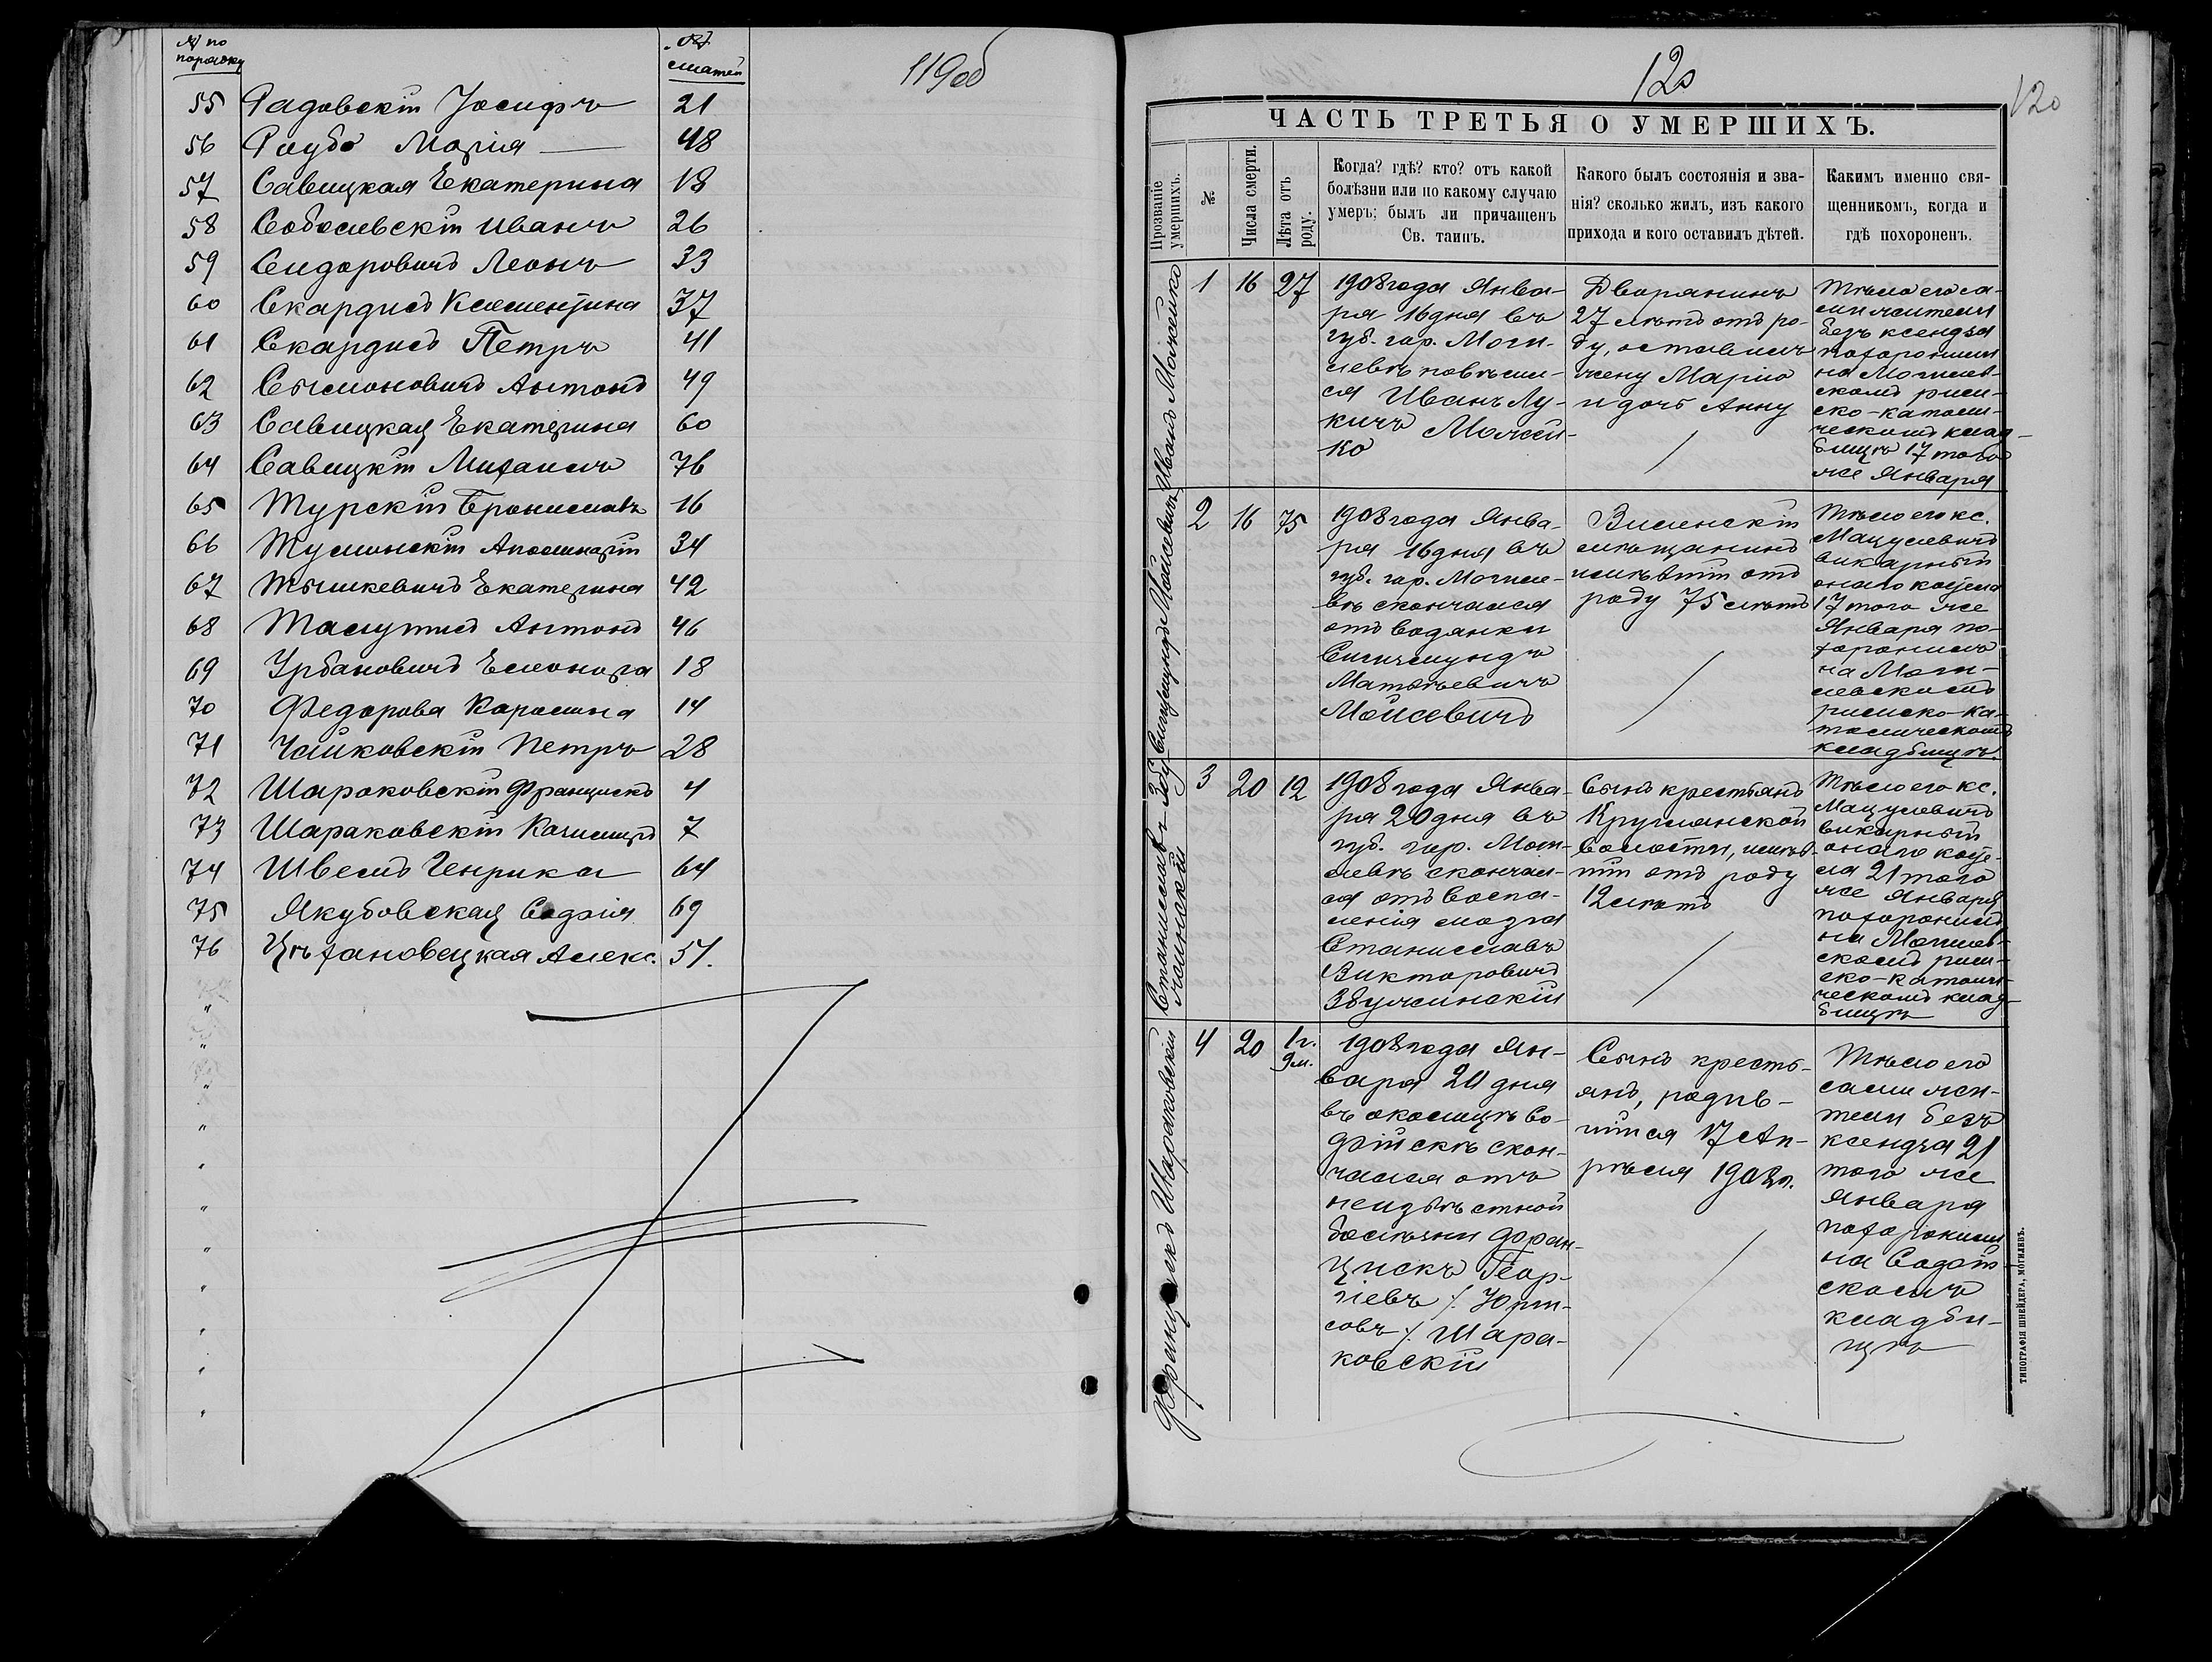 № по порядку
№ статей
119об
55 Радовскій Іосифъ 21
56 Раубо Марія — 48
57 Савицкая Екатерина 13
58 Соболевскій Иванъ 26
59 Сидоровичъ Леонъ 33
60 Скардисъ Клементина 37
61 Скардисъ Петръ 41
62 Сымоновичъ Антонъ 49
63 Савицкая Екатерина 60
64 Савицкій Михаилъ 76
65 Турскій Брониславъ 16
66 Тумонскій Аполинарій 34
67 Тышкевичъ Екатерина 42
68 Талутисъ Антонъ 46
69 Урбановичъ Елеонора 18
70 Федорова Каролина 14
71 Чайковскій Петръ 28
72 Шараковскій Францискъ 4
73 Шараковскій Казимиръ 7
74 Швелисъ Генрика 64
75 Якубовская Софія 69
76 Цѣхановецкая Алекс. 51.
120
120
ЧАСТЬ ТРЕТЬЯ О УМЕРШИХЪ.
Прозваніе умершихъ.
№
Числа смерти.
Лѣта отъ роду.
Когда? гдѣ? кто? отъ какой
болѣзни или по какому случаю
умеръ; былъ ли причащенъ
Св. таинъ.
Какого былъ состоянія и зва-
нія? сколько жилъ, изъ какого
прихода и кого оставилъ дѣтей.
Какимъ именно свя-
щенникомъ, когда и
гдѣ похороненъ.
Иванъ Можейко
1 16 27
1908 года Янва-
ря 16 дня въ
губ. гор. Моги-
левѣ повѣсил-
ся Иванъ Лу-
кичъ Можей-
ко
Дворянинъ
27 лѣтъ отъ ро-
ду, оставилъ
жену Марію
и дочь Анну
Тѣло его са-
ми жители
безъ ксендза
похоронили
на Могилев-
скомъ рим-
ско-католи-
ческомъ клад-
бищѣ 17 того
же Января
Сигизмундъ Мойсевичъ
2 16 75
1908 года Янва-
ря 16 дня въ
губ. гор. Могиле-
вѣ скончался
отъ водянки
Сигизмундъ
Матвѣевичъ
Мойсевичъ
Виленскій
мѣщанинъ
имѣвшій отъ
роду 75 лѣтъ
Тѣло его кс.
Мацулевичъ
викарный
онаго костела
17 того же
Января по-
хоронилъ
на Моги-
левскомъ
римско-ка-
толическомъ
кладбищѣ.
Станиславъ Збу-
жинскій
3 20 12
1908 года Янва-
ря 20 дня въ
губ. гор. Моги-
левѣ скончал-
ся отъ воспа-
ленія мозга
Станиславъ
Викторовичъ
Збужинскій
Сынъ крестьянъ
Круглянской
волости, имѣв-
шій отъ роду
12 лѣтъ
Тѣло его кс.
Мацулевичъ
викарный
онаго косте-
ла 21 того
же Января
похоронилъ
на Могилев-
скомъ рим-
ско-католи-
ческомъ клад-
бищѣ
Францискъ Шараковскій
4 20 1г.
9м.
1908 года Ян-
варя 20 дня
въ околицѣ Со-
фійскѣ скон-
чался отъ
неизвѣстной
болѣзни Фран-
цискъ Геор-
гіевъ /. Юрій-
совъ /. Шара-
ковскій
Сынъ кресть-
янъ, родив-
шійся 17 Ап-
рѣля г.
Тѣло его
сами жи-
тели безъ
ксендза 21
того же
Января
похоронили
на Софій-
скомъ
кладби-
щѣ
ТИПОГРАФІЯ ШНЕЙДЕРА, МОГИЛЕВЪ.